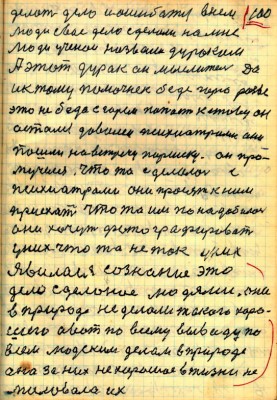 делат дело и ошибатся в нем 100
люди свае дело сделали на мне
люди ученои назвала дураком
А этот дурак он мылител Да
и к тому помочнек беде пиро разве
это не беда с горем попат к тову он
астали доволеи психиатрами они
пошли на встречу париску. он про-
мучился что та сделалос с
психиатрами они просят к ним
приехат что та им по надобилос
они хочут фотографироват
у них что та не так у них
явилася сознание это
дело сделоное людями. они
в природе не делали такого харо-
шего а вот по всему выводу по
всем людским делам в природе
ана за них не харошое в жизни не
миловала их